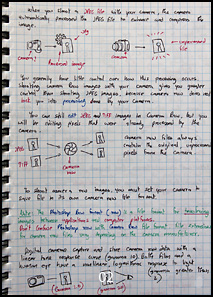 When you shoot a JPEG file with your camera, the camera
automatically processes the JPEG file to enhance and compress the
image.
.Jpg
camera
Processed image
You generally have little control over how this processing occurs.
Shooting camera raw images with your camera gives you greater
control than shooting JPEG images, because camera raw does not
lock you into processing done by your camera.
You can still edit JPEG and TIFF images in Camera Raw, but you
will be editing pixels that were already processed by the
camera.
JPEG
TIFF
camera raw files always
contain the original unprocessed
pixels from the camera
To shoot camera raw images, you must set your camera to
save files in its own camera raw file format.
Note: The Photoshop Raw format (.raw) is a file format for transferring
images between applications and computer platforms.
Don't confuse Photoshop raw with Camera Raw file format. File extensions
for camera raw files vary depending on the camera manufacturer.
Digital cameras capture and store camera raw data with a
linear tone response curve (gamma 1.0). Both film and the
human eye have a non-linear, logarithmic response to light
(gamma greater than
(gamma 1.0)